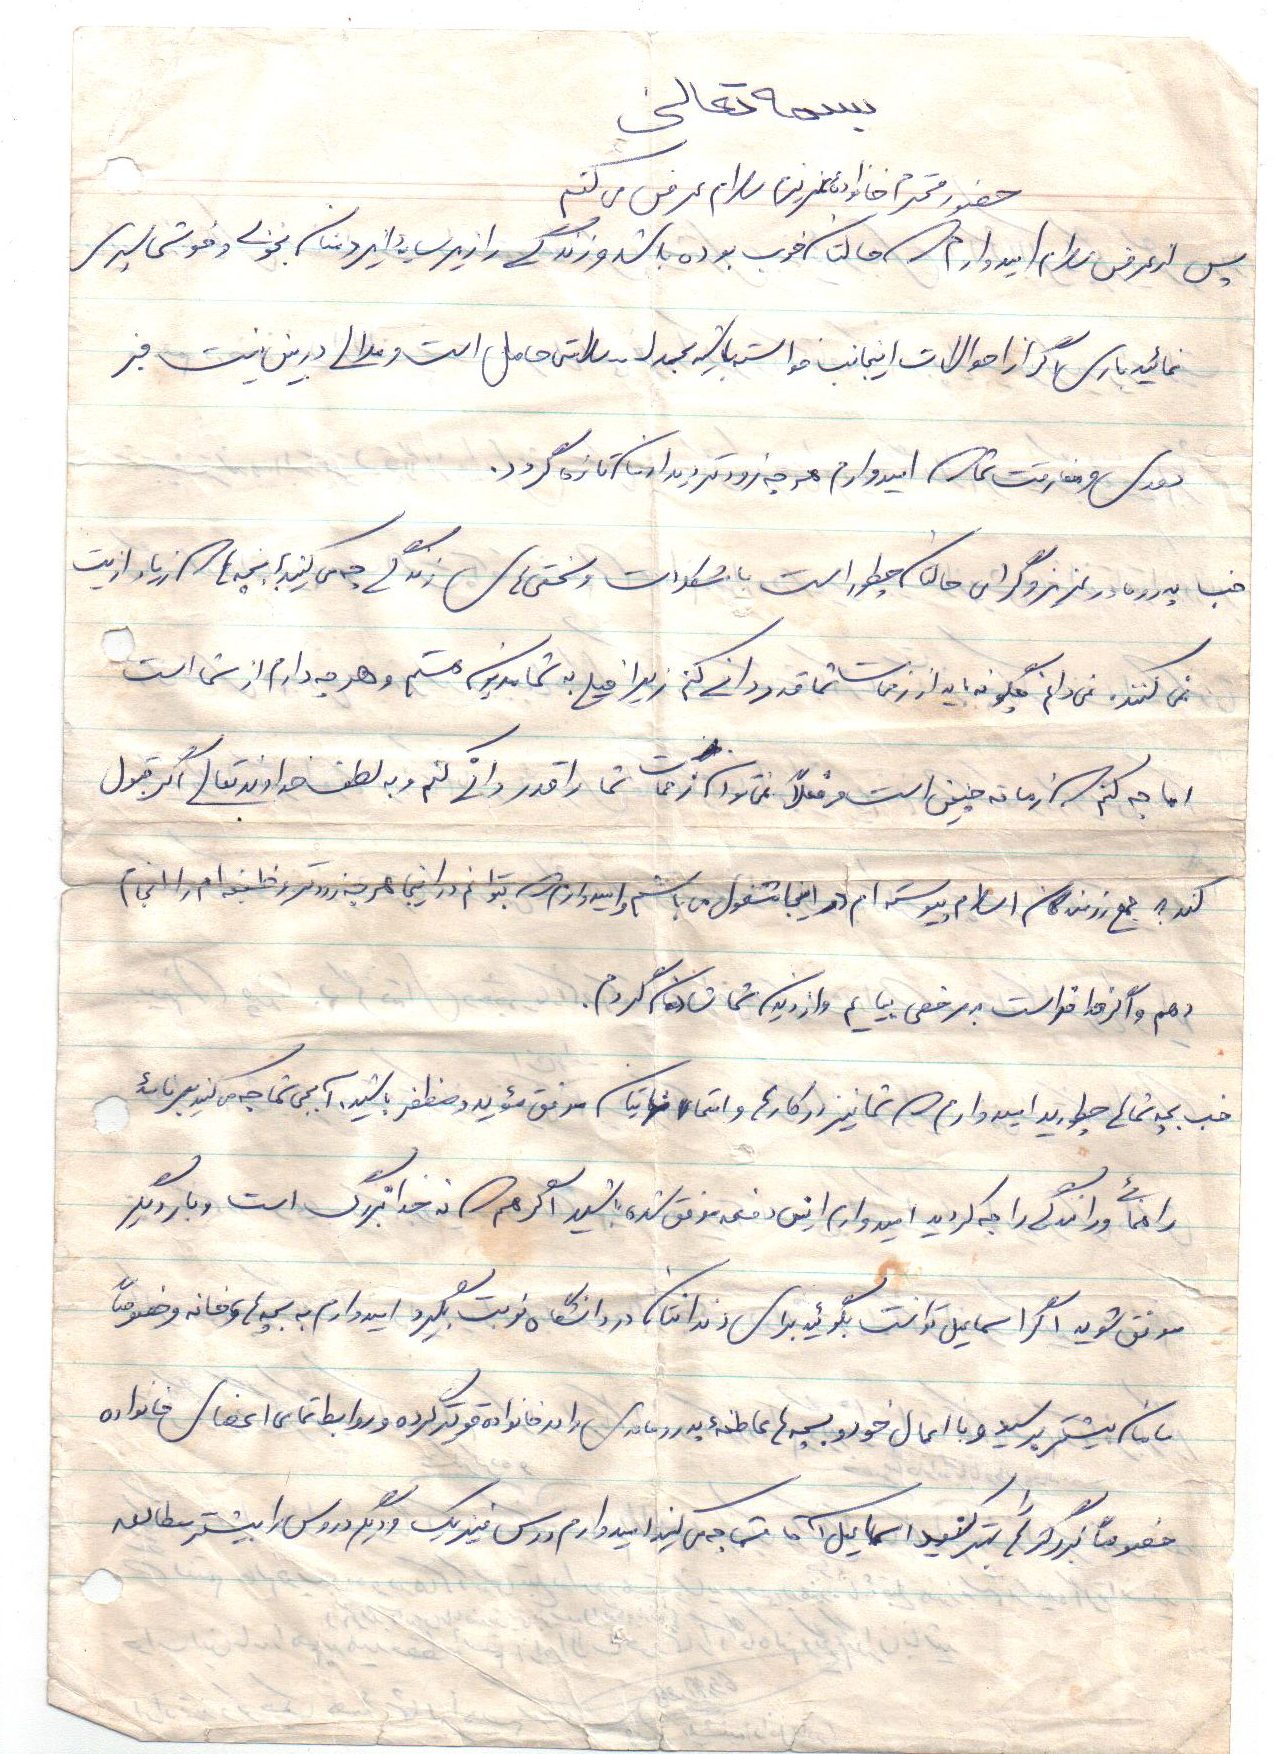 بسمه تعالی
حضور محترم خانواده عزیزم سلام عرض می کنم
پس از عرض سلام امیدوارم که حالتان خوب بوده باشد و زندگی را زیر سایه ایزد منان بخوبی و خوشی سپری
نمائید باری اگر از احوالات اینجانب خواسته باشید بحمدلله سلامتی حاصل است و ملالی در بین نیست جز
دوری و مفارقت شما که امیدوارم هر چه زودتر دیدارمان تازه گردد.
خب پدر و مادر عزیز و گرامی حالتان چطور است با مشکلات و سختی های زندگی چه می کنید، بچه ها که زیاد اذیت
نمی کنند. نمی دانم چگونه باید از زحمات شما قدردانی کنم زیرا خیلی به شما مدیون هستم و هر چه دارم از شما است
اما چه کنم که زمانه چنین است و فعلاً نمی توان زحمات شما را قدردانی کنم و به لطف خداوند تعالی اگر قبول
کند به جمع رزمندگان اسلام پیوسته ام و در اینجا مشغول می باشم و امیدوارم که بتوانم در اینجا هر چه زودتر وظیفه ام را انجام
دهم و اگر خدا خواست به مرخصی بیایم و از دیدن شما شادمان گردم.
خب بچه شماها چطورید امیدوارم که شما نیز در کارها و امتحاناتتان موفق مؤید و مظفر باشید، آبجی شما چه می کنید برنامهٔ
راهنمائی و رانندگی را چه کردید امیدوارم این دفعه موفق شده باشید اگر هم که نه خدا بزرگ است و بار دیگر
موفق شوید اگر اسماعیل توانست بگوئید برای دندانتان در دانشگاه نوبت بگیرد امیدوارم به بچه های خانه و خصوصاً
مامان بیشتر برسید و با اعمال خود و بچه ها عاطفهٔ پدر و مادری را در خانواده قویتر کرده و روابط تمامی اعضای خانواده
خصوصاً بزرگترها را بهتر کنید اسماعیل آقا شما چه می کنید امیدوارم درس فیزیک و دیگر دروس را بیشتر مطالعه